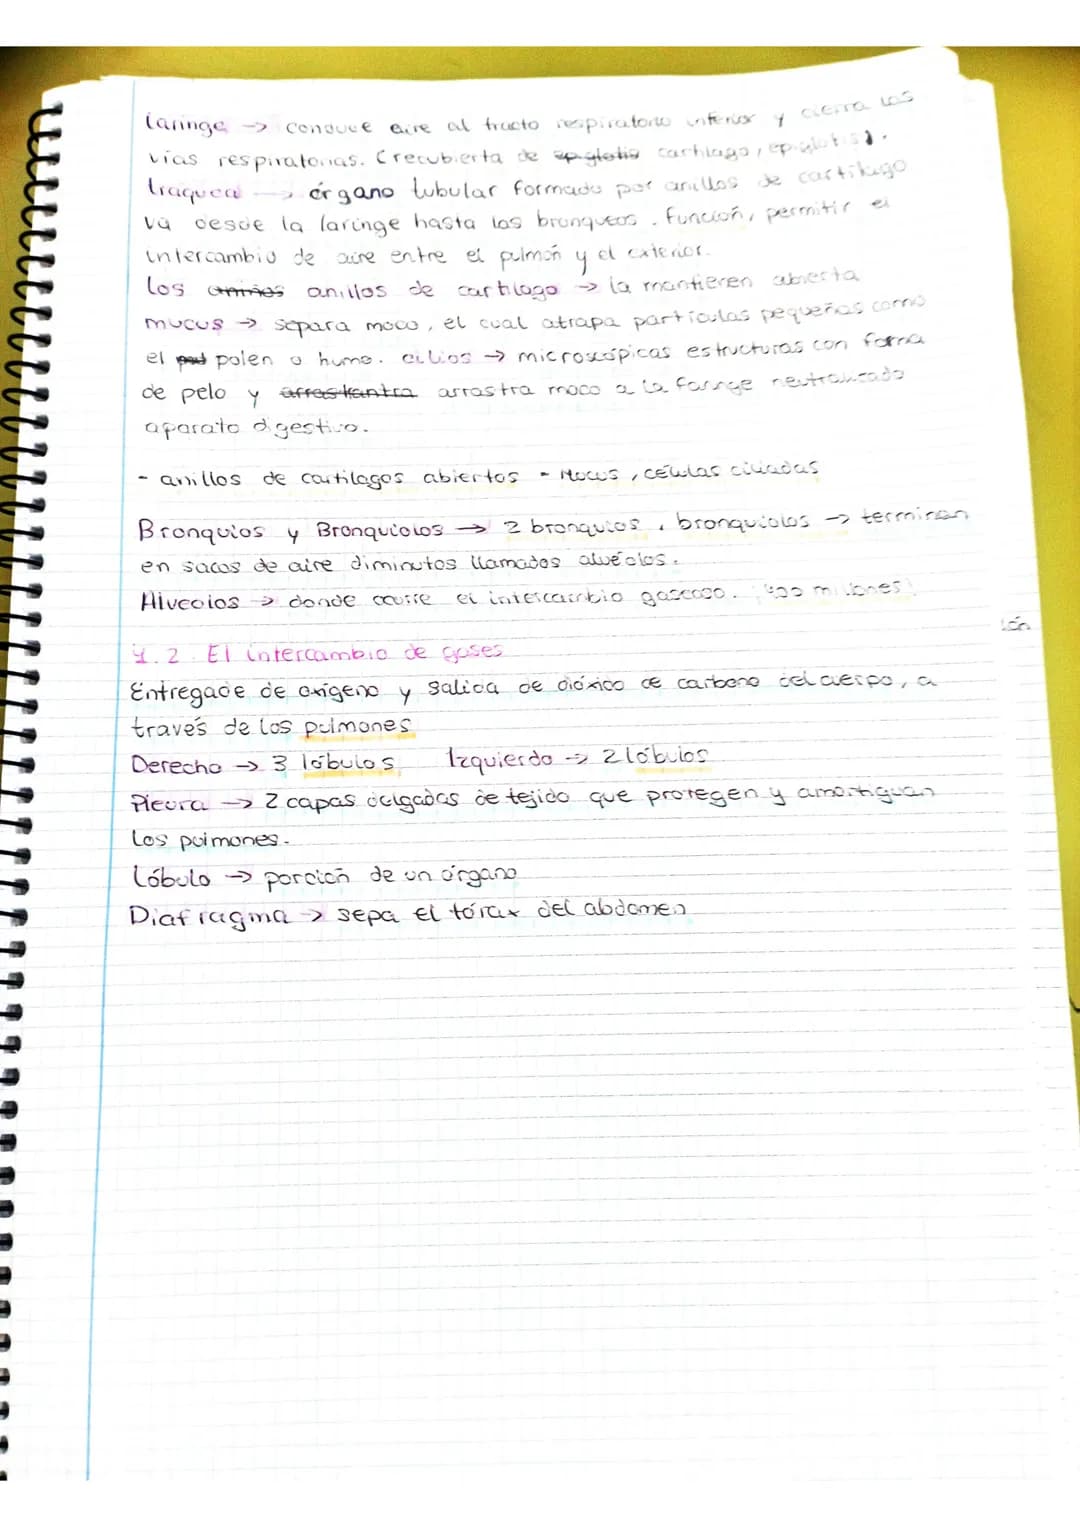 laringe → conduce aire al tracto respiratorio inferior y cierra las
vias respiratorias. (recubierta de epiglotis cartilago, epiglotis).
traquea → órgano tubular formado por anillos de cartílago
va desde la laringe hasta los bronqueos. Función, permitir el
intercambio de aire entre el pulmón y el exterior.
los anillos de cartilago → la mantienen abierta
mucus → separa moco, el cual atrapa partículas pequeñas como
el polen o humo. cilios → microscópicas estructuras con forma
de pelo y arrastra moco a la faringe neutralizado
aparato digestivo.
- anillos de cartilagos abiertos - Mocus, células ciliadas
Bronquios y Bronquiolos → 2 bronquios, bronquiolos → terminan
en sacos de aire diminutos llamados alvéolos.
Alveolos → donde ocurre el intercambio gaseoso. 400 millones
ión
4.2. El intercambio de gases
Entregade de oxígeno y salida de dióxico de carbono del cuerpo, a
través de los pulmones
Derecho → 3 lóbulos Izquierdo → 2 lóbulos
Pleura → 2 capas delgadas de tejido que protegen y amortiguan
los pulmones.
Lóbulo → porción de un órgano
Diafragma → sepa el tórax del abdomen